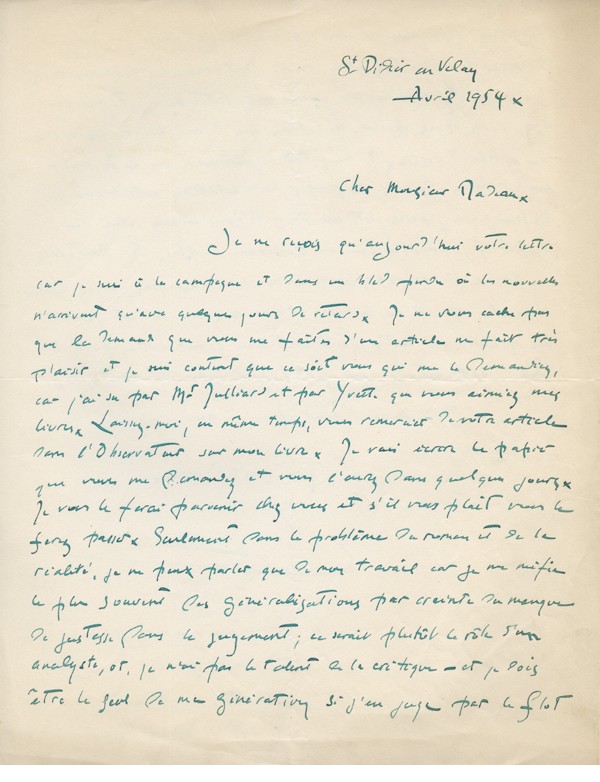 St Didier en Velay
Avril 1954 x
Cher Monsieur Nadeau x
Je ne reçois qu'aujourd'hui votre lettre
car je suis à la campagne et dans un bled perdu où les nouvelles
n'arrivent qu'avec quelques jours de retard x Je ne vous cache pas
que la demande que vous me faites d'un article me fait très
plaisir et je suis content que ce soit vous qui me le demandiez,
car j'ai su par Mr Julliard et par Yvette que vous aimiez mes
livres x Laissez-moi, en même temps, vous remercier de votre article
dans l'Observateur sur mon livre x Je vais écrire le papier
que vous me demandez et vous l'aurez dans quelques jours x
Je vous le ferai parvenir chez vous et s'il vous plaît vous le
ferez passer x Seulement dans le problème du roman et de la
réalité, je ne peux parler que de mon travail car je me méfie
le plus souvent des généralisations par crainte du manque
de justesse dans le jugement ; ce serait plutôt le rôle d'un
analyste, or, je n'ai pas le talent de la critique – et je dois
être le seul de ma génération si j'en juge par le flot